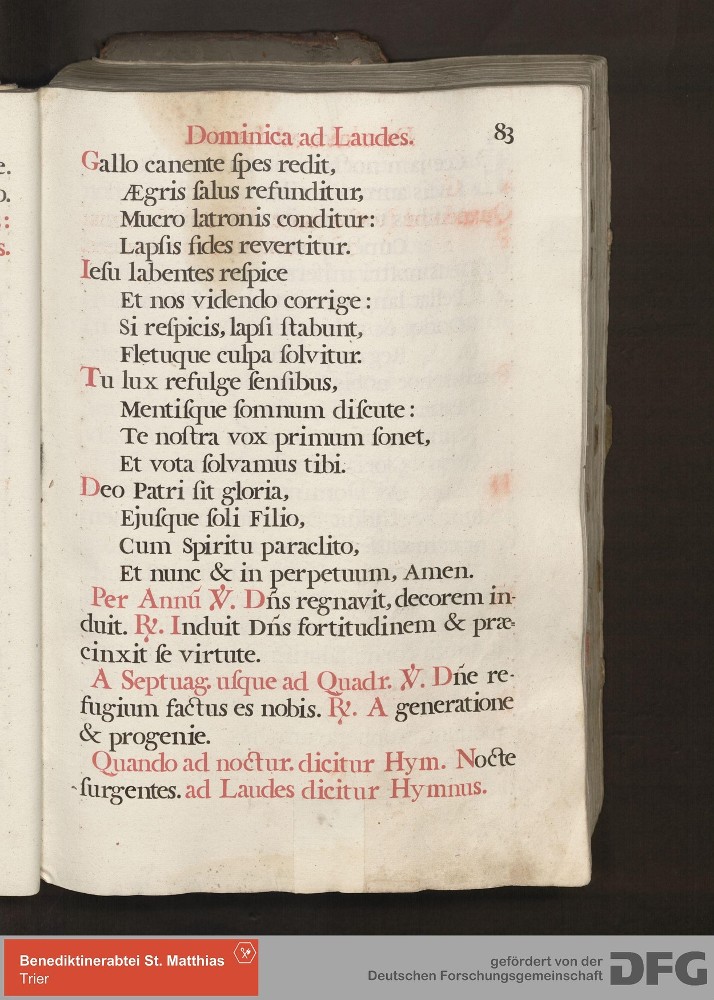 Dominica ad Laudes. 83
Gallo canente ſpes redit,
Ægris ſalus refunditur,
Mucro latronis conditur:
Lapſis fides revertitur.
Ieſu labentes reſpice
Et nos videndo corrige:
Si reſpicis, lapſi ſtabunt,
Fletuque culpa ſolvitur.
Tu lux refulge ſenſibus,
Mentiſque ſomnum diſcute:
Te noſtra vox primum ſonet,
Et vota ſolvamus tibi.
Deo Patri ſit gloria,
Ejuſque ſoli Filio,
Cum Spiritu paraclito,
Et nunc & in perpetuum, Amen.
Per Annũ ℣. Dñs regnavit, decorem in-
duit. ℟. Induit Dñs fortitudinem & præ-
cinxit ſe virtute.
A Septuag. uſque ad Quadr. ℣. Dñe re-
fugium factus es nobis. ℟. A generatione
& progenie.
Quando ad noctur. dicitur Hym. Nocte
ſurgentes. ad Laudes dicitur Hymnus.
e.
o.
:
s.
Benediktinerabtei St. Matthias
Trier
gefördert von der
Deutschen Forschungsgemeinschaft
DFG